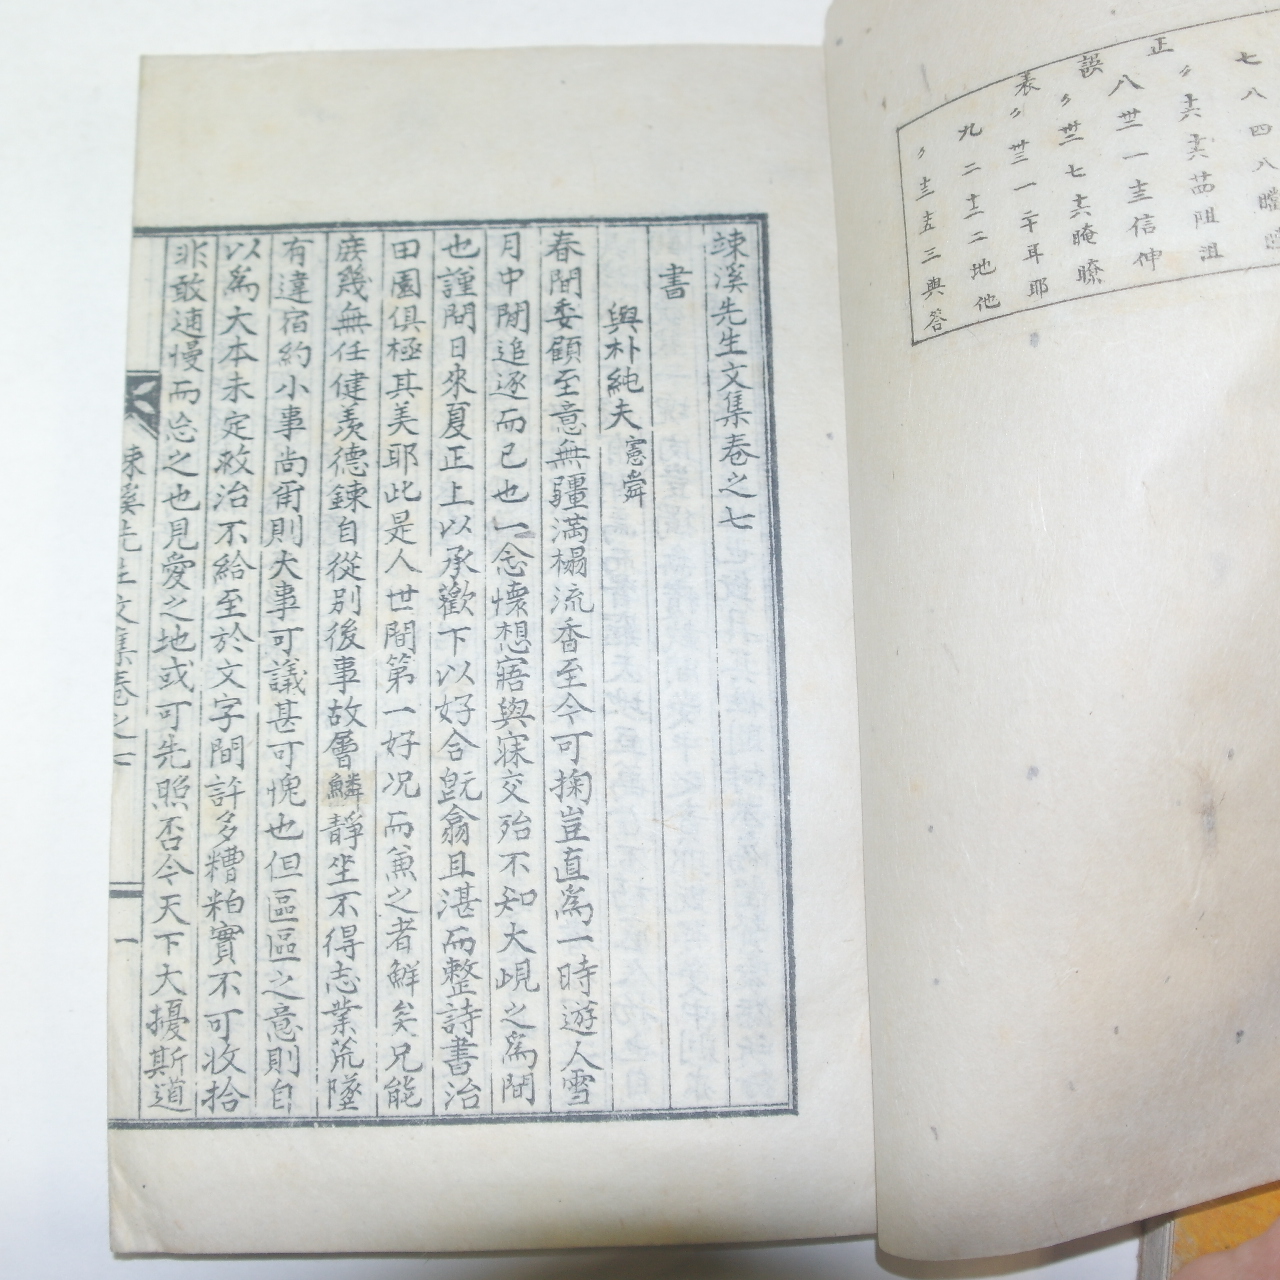 正誤表
七八四八瞪
〃十六十六茁阻沮
八卅一十三信伸
〃卅七十六晻瞭
〃卅三一二十耳耶
九二十二二地他
〃十三十五三與答
竦溪先生文集卷之七
書
與朴純夫憲舜
春間委顧至意無疆滿榻流香至今可掬豈直爲一時遊人雪
月中閒追逐而已也一念懷想寤與寐交殆不知大峴之爲間
也謹問日來夏正上以承歡下以好合旣翕且湛而整詩書治
田園俱極其美耶此是人世間第一好况而兼之者鮮矣兄能
庶幾無任健羨德鍊自從別後事故層鱗靜坐不得志業荒墜
有違宿約小事尚甭則大事可議甚可愧也但區區之意則自
以爲大本未定救治不給至於文字間許多糟粕實不可收拾
非敢逋慢而忘之也見愛之地或可先照否今天下大擾斯道
竦溪先生文集卷之七
一